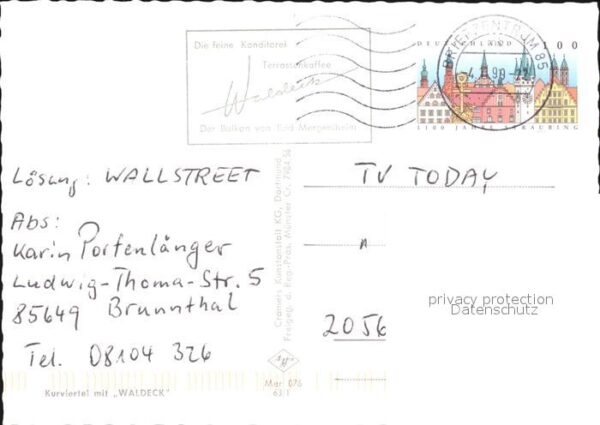 Die feine Konditorei
Terrassenkaffee
Waldeck
Der Balkon von Bad Mergentheim
DEUTSCHLAND 100
BRIEFZENTRUM 85
1100 JAHRE STRAUBING
Lösung: WALLSTREET
Abs:
Karin Portenlänger
Ludwig-Thoma-Str. 5
85649 Brunnthal
Tel. 08104 326
Kurviertel mit „WALDECK"
Cramers Kunstanstalt KG, Dortmund
Freigeg. d. Reg.-Präs. Münster Nr. 7984/56
Mar 076
63/1
TV TODAY
privacy protection
Datenschutz